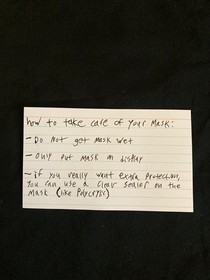 how to take care of your mask:
- Do Not get mask wet
- only put mask on display
- if you really want extra protection,
you can use a clear sealer on the
mask (like Polycrylic)